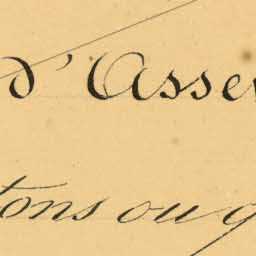 d'Asse
tons ou g